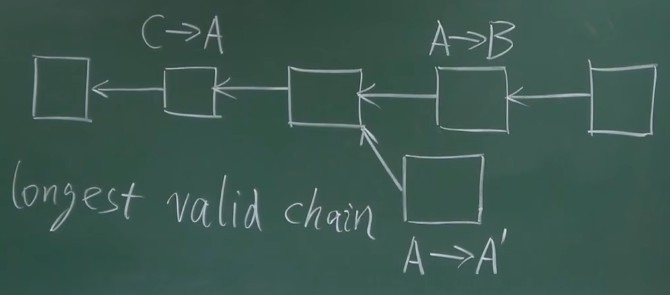 C→A
A→B
longest valid chain
A→A'